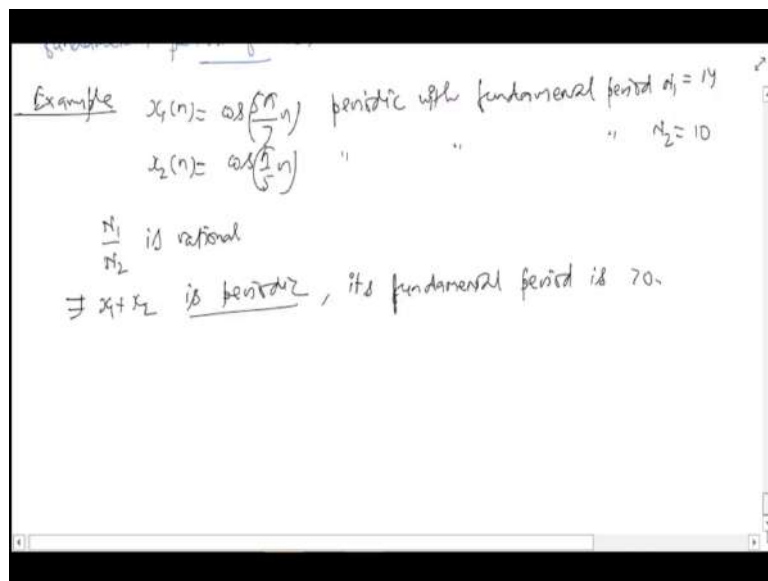 Example x₁(n) = cos(5π/7 n) periodic with fundamental period N₁ = 14
x₂(n) = cos(π/5 n) " " " N₂ = 10
N₁/N₂ is rational
⇒ x₁+x₂ is periodic, its fundamental period is 70.